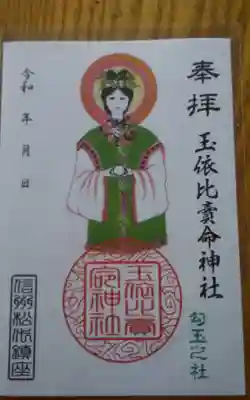 奉拝
玉依比賣命神社
勾玉之社
令和 年 月 日
玉依比賣命神社
信州松代鎮座